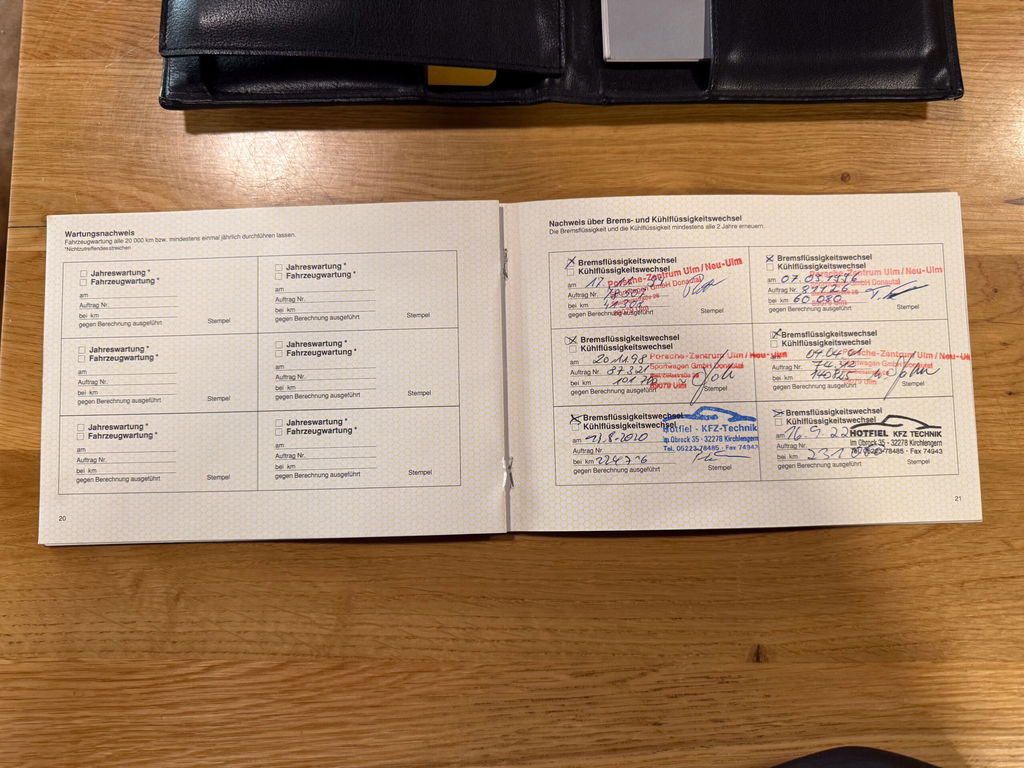 Wartungsnachweis
Fahrzeugwartung alle 20 000 km bzw. mindestens einmal jährlich durchführen lassen.
*Nichtzutreffendes streichen
Jahreswartung *
Fahrzeugwartung *
am
Auftrag Nr.
bei km
gegen Berechnung ausgeführt Stempel
Jahreswartung *
Fahrzeugwartung *
am
Auftrag Nr.
bei km
gegen Berechnung ausgeführt Stempel
Jahreswartung *
Fahrzeugwartung *
am
Auftrag Nr.
bei km
gegen Berechnung ausgeführt Stempel
Jahreswartung *
Fahrzeugwartung *
am
Auftrag Nr.
bei km
gegen Berechnung ausgeführt Stempel
Jahreswartung *
Fahrzeugwartung *
am
Auftrag Nr.
bei km
gegen Berechnung ausgeführt Stempel
Jahreswartung *
Fahrzeugwartung *
am
Auftrag Nr.
bei km
gegen Berechnung ausgeführt Stempel
20
Nachweis über Brems- und Kühlflüssigkeitswechsel
Die Bremsflüssigkeit und die Kühlflüssigkeit mindestens alle 2 Jahre erneuern.
Bremsflüssigkeitswechsel
Kühlflüssigkeitswechsel
Porsche-Zentrum Ulm / Neu-Ulm
Sportwagen GmbH Donautal
am
Auftrag Nr.
bei km
gegen Berechnung ausgeführt Stempel
Bremsflüssigkeitswechsel
Kühlflüssigkeitswechsel
Porsche-Zentrum Ulm / Neu-Ulm
Sportwagen GmbH Donautal
am
Auftrag Nr. 87126
bei km 60 080
gegen Berechnung ausgeführt Stempel
Bremsflüssigkeitswechsel
Kühlflüssigkeitswechsel
Porsche-Zentrum Ulm / Neu-Ulm
Sportwagen GmbH Donautal
am 20.11.98
Auftrag Nr. 87321
bei km
89079 Ulm
gegen Berechnung ausgeführt Stempel
Bremsflüssigkeitswechsel
Kühlflüssigkeitswechsel
Porsche-Zentrum Ulm / Neu-Ulm
Sportwagen GmbH Donautal
am
Auftrag Nr. 74312
bei km
gegen Berechnung ausgeführt Stempel
Bremsflüssigkeitswechsel
Kühlflüssigkeitswechsel
Hotfiel - KFZ-Technik
Im Obrock 35 - 32278 Kirchlengern
Tel. 05223-78485 - Fax 74943
am
Auftrag Nr.
bei km
gegen Berechnung ausgeführt Stempel
Bremsflüssigkeitswechsel
Kühlflüssigkeitswechsel
HOTFIEL KFZ TECHNIK
Im Obrock 35 - 32278 Kirchlengern
78485 - Fax 74943
am 16.9.22
Auftrag Nr.
bei km
gegen Berechnung ausgeführt Stempel
21